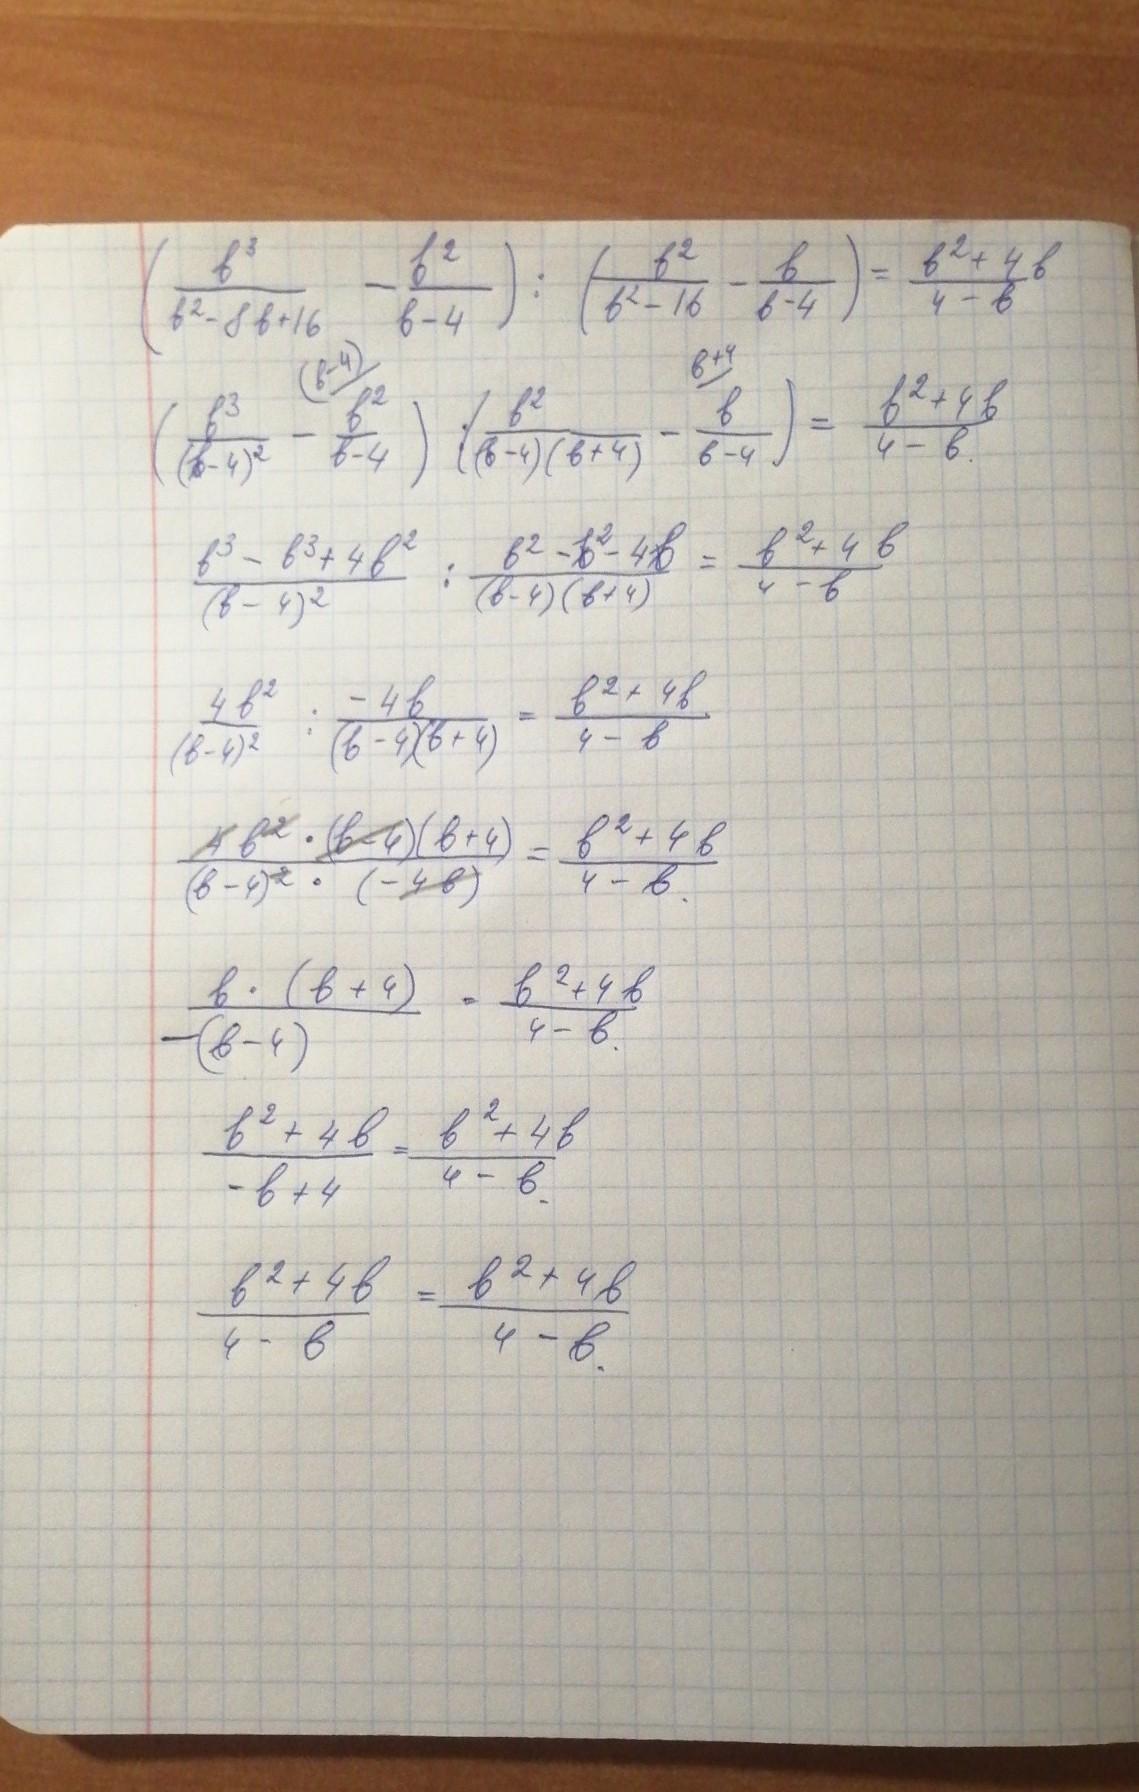 (b³/(b²-8b+16) - b²/(b-4)) : (b²/(b²-16) - b/(b-4)) = (b²+4b)/(4-b)
(b³/(b-4)² - b²/(b-4) (b-4)/) : (b²/((b-4)(b+4)) - b/(b-4) b+4/) = (b²+4b)/(4-b).
(b³-b³+4b²)/(b-4)² : (b²-b²-4b)/((b-4)(b+4)) = (b²+4b)/(4-b)
4b²/(b-4)² : -4b/((b-4)(b+4)) = (b²+4b)/(4-b)
(4b²·(b-4)(b+4))/((b-4)²·(-4b)) = (b²+4b)/(4-b).
(b·(b+4))/(-(b-4)) = (b²+4b)/(4-b).
(b²+4b)/(-b+4) = (b²+4b)/(4-b).
(b²+4b)/(4-b) = (b²+4b)/(4-b).